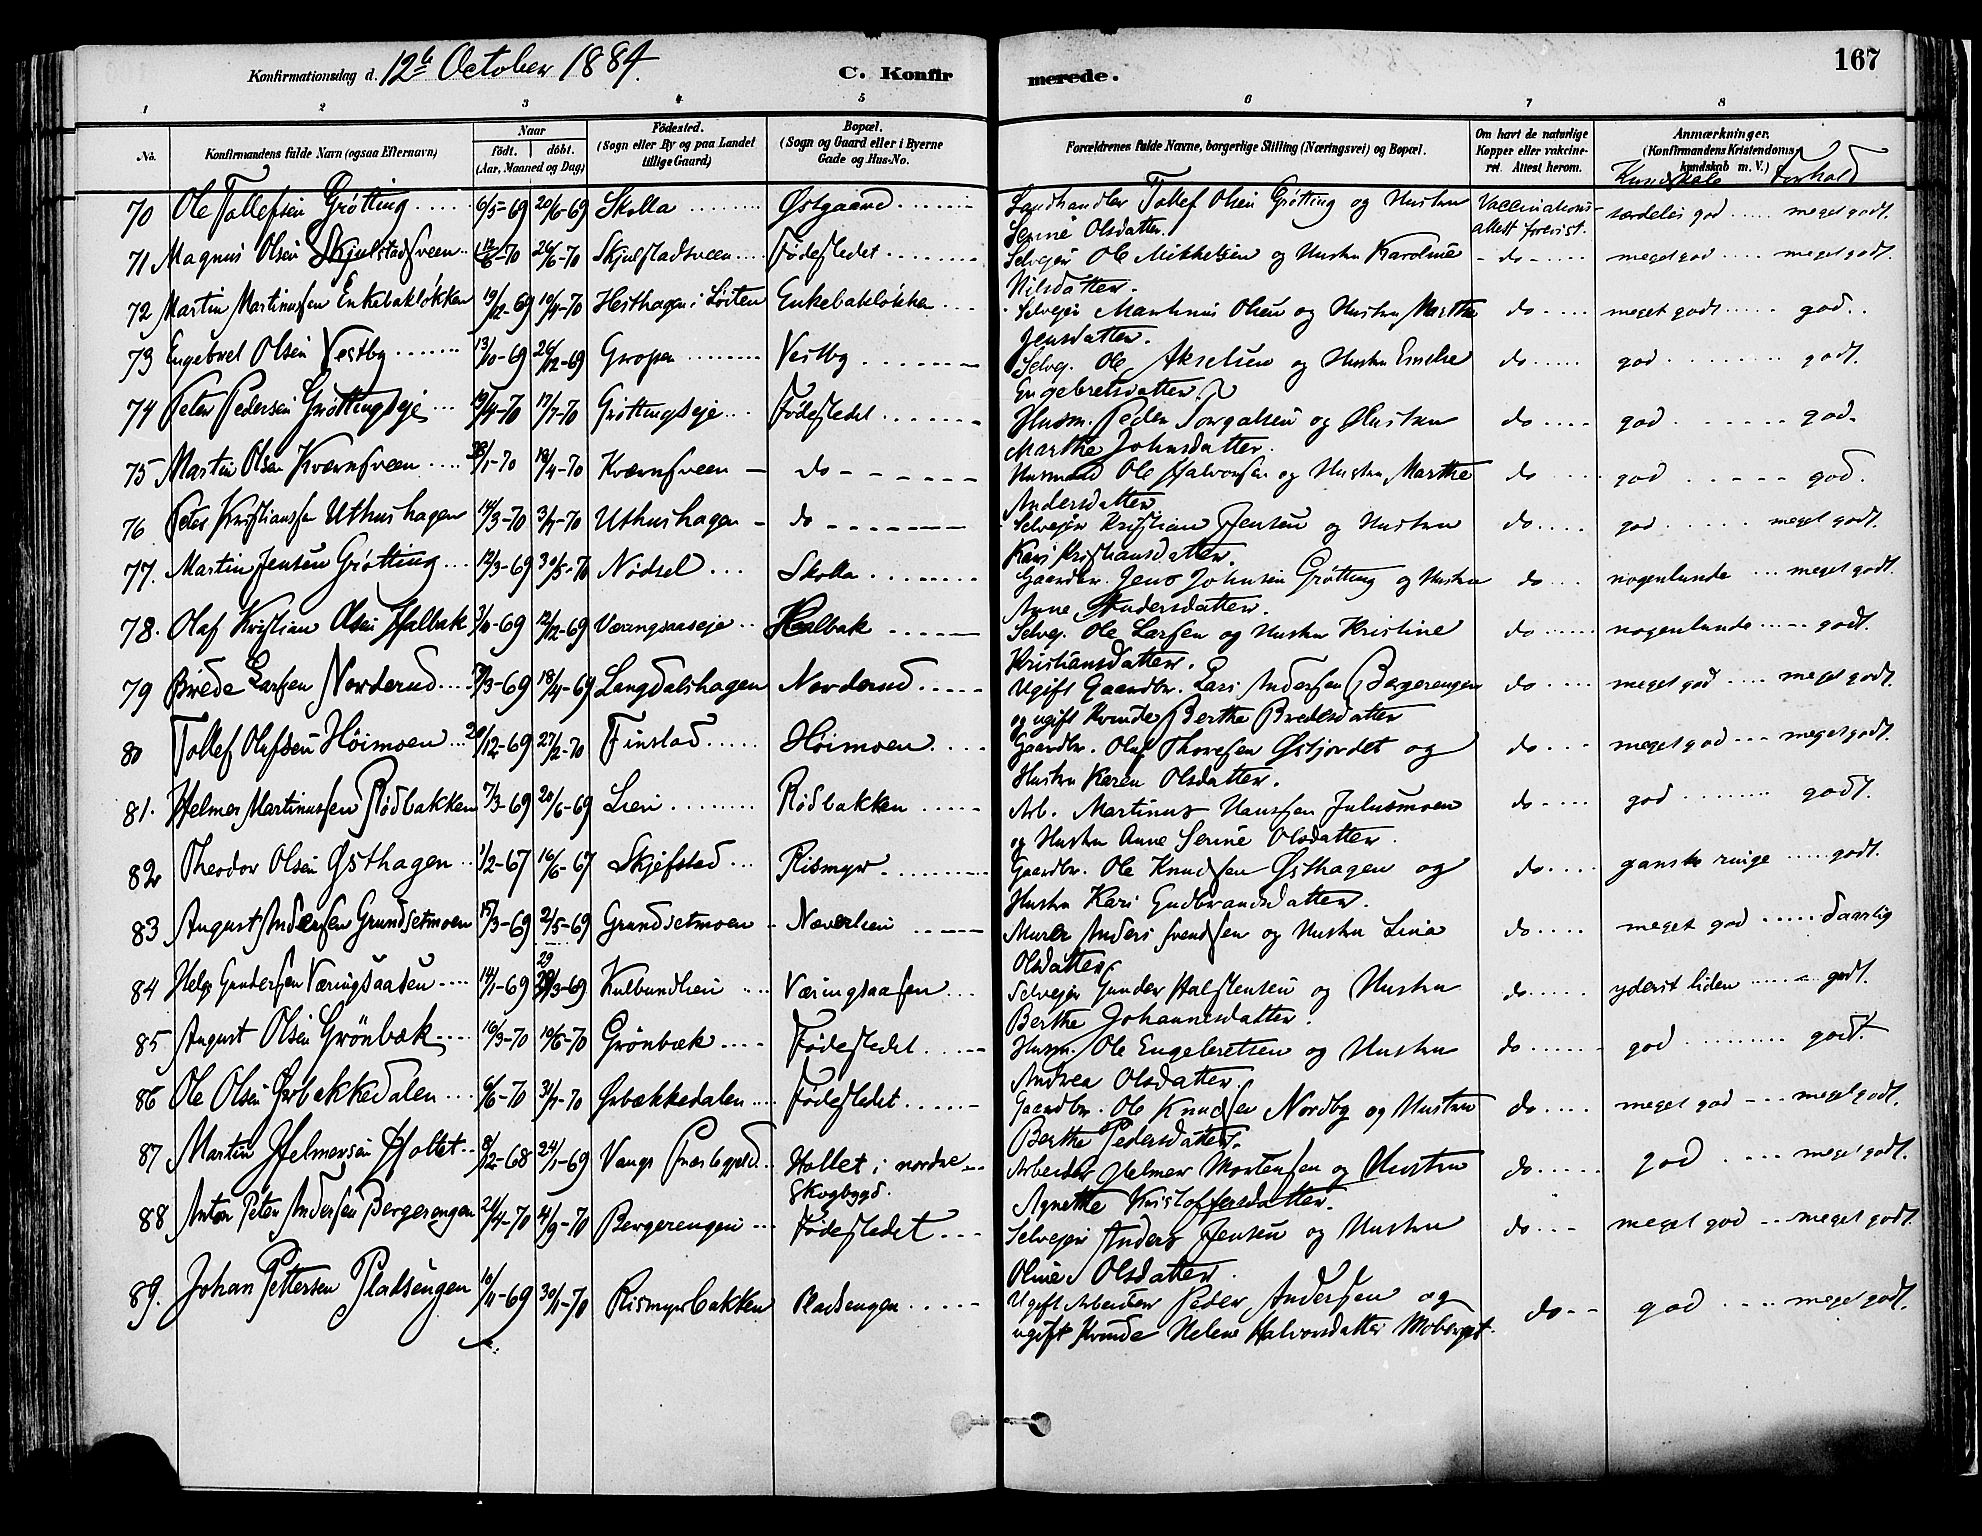 167
Konfirmationsdag d. 12te October 1884.
C. Konfirmerede.
1 2 3 4 5 6 7 8
No. Konfirmandens fulde Navn (ogsaa Efternavn) Naar født. døbt. (Aar, Maaned og Dag) Fødested. (Sogn eller By og paa Landet tillige Gaard) Bopæl. (Sogn og Gaard eller i Byerne Gade og Hus-No. Forældrenes fulde Navne, borgerlige Stilling (Næringsvei) og Bopæl. Om havt de naturlige Kopper eller vakcineret. Attest herom. Anmærkninger. (Konfirmandens Kristendomskundskab m. V.)
Kundskab Forhold
70 Ole Tollefsen Grötting 6/5-69 20/6-69 Skolla Østgaard Landhandler Tollef Olsen Grötting og Hustru Vaccinations- særdeles god meget godt.
Serine Olsdatter. attest forevist.
71 Magnus Olsen Skjulstadsveen 12/6-70 26/6-70 Skjulstadsveen Födestedet Selvejer Ole Mikkelsen og Hustru Karoline do meget god meget godt.
Nilsdatter.
72 Martin Martinussen Enkebakløkken 19/12-69 10/4-70 Hesthagen i Löiten Enkebakløkken Selvejer Martinus Olsen og Hustru Marthe do meget godt god.
Jensdatter.
73 Engebret Olsen Vestby 13/10-69 26/12-69 Gropen Vestby Selvej. Ole Akselsen og Hustru Emelie do god godt.
Engebretsdatter.
74 Peter Pedersen Gröttingseje 19/4-70 17/7-70 Gröttingseje Födestedet Husm. Peder Torgalsen og Hustru do god god.
Marthe Johnsdatter.
75 Martin Olsen Kværnsveen 28/1-70 18/4-70 Kværnsveen do Husmand Ole Halvorsen og Hustru Marthe do god god.
Andersdatter
76 Peter Kristiansen Uthushagen 14/3-70 3/7-70 Uthushagen do Selvejer Kristian Jensen og Hustru do god meget godt.
Kari Kristiansdatter.
77. Martin Jensen Grötting 12/3-69 30/5-70 Nödsel Skolla Gaardbr. Jens Johnsen Grötting og Hustru do nogenlunde meget godt.
Anne Andersdatter.
78. Olaf Kristian Olsen Halbak 3/10-69 12/12-69 Væringsaaseje Halbak Selvej. Ole Larsen og Hustru Kristine do nogenlunde godt.
Kristiansdatter.
79 Brede Larsen Norderud /3-69 18/4-69 Langdalshagen Norderud Ugift Gaardbr. Lars Andersen Bergerengen do meget god meget godt.
og ugift Kvinde Berthe Bredesdatter
80 Tollef Olafsen Höimoen 20/12-69 27/2-70 Finstad Höimoen Gaardbr. Olaf Thoresen Østjordet og do meget god meget godt.
Hustru Karen Olsdatter.
81. Helmer Martinussen Rödbakken 7/3-69 20/6-69 Lieri Rödbakken Arb. Martinus Hanssen Julusmoen do god godt.
og Hustru Anne Serine Olsdatter.
82 Theodor Olsen Østhagen 1/2-67 16/6-67 Skjefstad Rismyr Gaardbr. Ole Knudsen Østhagen og do ganske ringe godt.
Hustru Kari Gudbrandsdatter.
83 August Andersen Grundsetmoen 15/3-69 2/5-69 Grundsetmoen Næverlien Murer Anders Svendsen og Hustru Lina do meget god daarlig
Olsdatter.
84 Helge Gundersen Væringsaasen 14/1-69 29/3-69 Kulbundlien Væringsaasen Selvejer Gunder Halstensen og Hustru do yderst liden godt.
Berthe Johannesdatter.
85 August Olsen Grönbæk 16/3-70 19/6-70 Grönbæk Födestedet Husm. Ole Engebretsen og Hustru do god godt.
Andrea Olsdatter.
86 Ole Olsen Ørbækkedalen 6/6-70 31/7-70 Ørbækkedalen Födestedet Gaardbr. Ole Knudsen Nordby og Hustru do meget god meget godt.
Berthe Pedersdatter.
87 Martin Helmersen Holtet 8/12-68 24/1-69 Vangs Præstegjeld Holtet i nordre Arbeider Helmer Mortensen og Hustru do god meget godt.
Skogbygd. Agnethe Kristoffersdatter.
88 Anton Peter Andersen Bergerengen 21/4-70 4/9-70 Bergerengen Födestedet Selvejer Anders Jensen og Hustru do meget god meget godt.
Oline Olsdatter.
89. Johan Pettersen Pladsengen 10/11-69 30/1-70 Rismyrbakken Pladsengen Ugift Arbeider Peder Andersen og do god meget godt.
ugift Kvinde Helene Halvorsdatter Moberget.